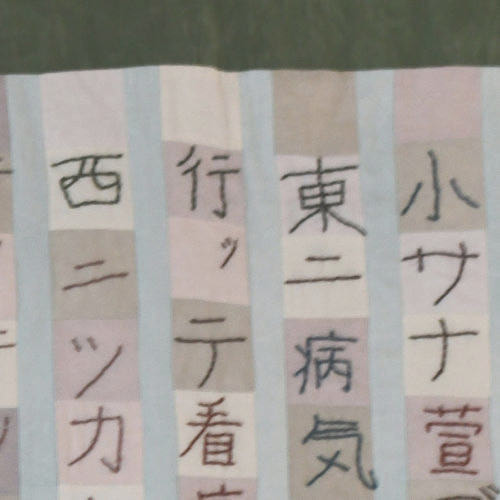 小サナ萱
東ニ病気
行ッテ看
西ニツカ